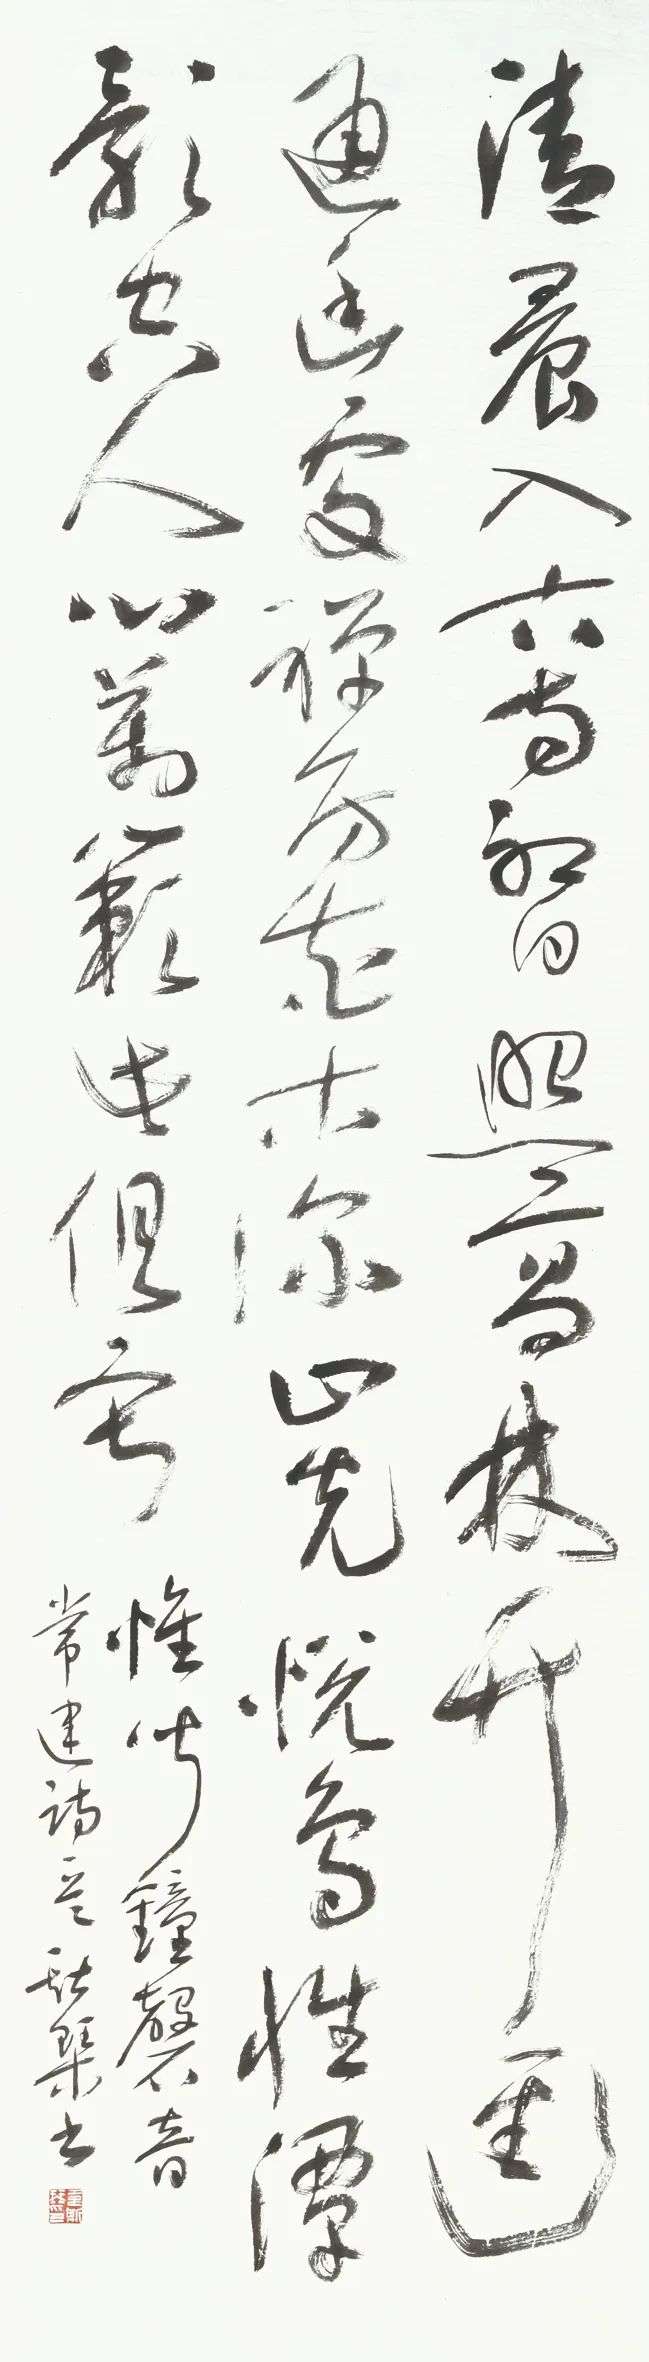 清晨入古寺初日照高林竹逕
通幽處禪房花木深山光悅鳥性潭
影空人心萬籟此俱寂
惟聞鐘磬音
常建詩意 書